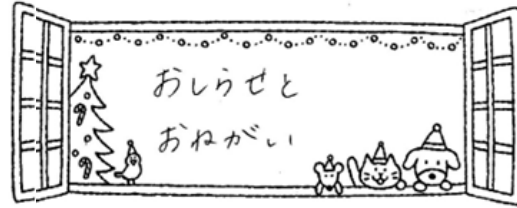 おしらせと
おねがい